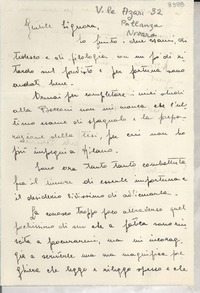 V. le Azari 32
Pallanza
Novara
Gentile Signora,
ho finito i due esami, di
tedesco e di filologia con un po' di ri
tardo sul previsto e per fortuna sono
andati bene.
Ormai per completare i miei studi
alla Bocconi non mi manca che l'ul
timo esame di spagnolo e la prepa-
razione della tesi, per cui non ho
più impegni a Milano.
Sono ora tanto tanto combattuta
fra il timore di essere importuna e
il desiderio vivissimo di
La conosco troppo poco attraverso quel
pochissimo di suo che a fatica sono riu
scita a procurarmi, ma mi incorag
gia a scriverle una sua magnifica pre
ghiera che leggo e rileggo spesso e che